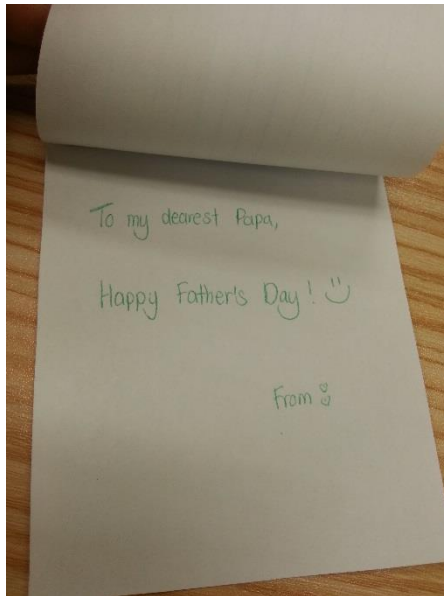 To my dearest Papa,
Happy Father's Day! :)
From :